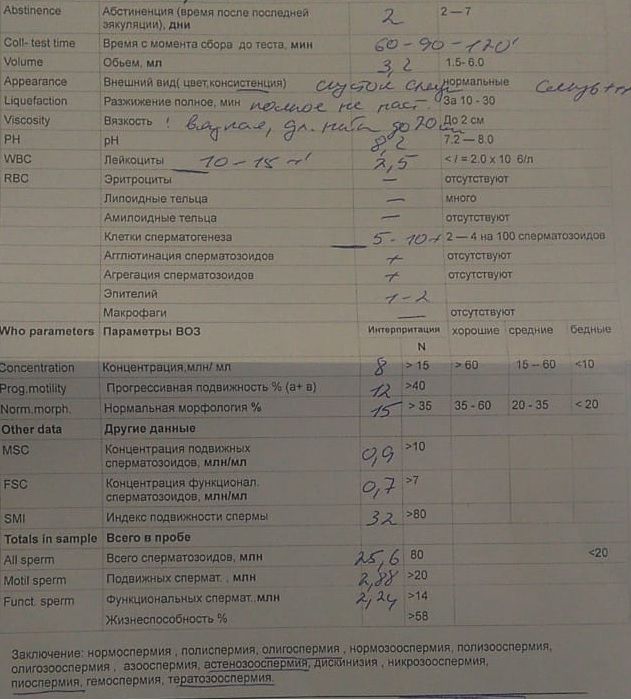 Abstinence Абстиненция (время после последней эякуляции), дни 2 2 — 7
Coll- test time Время с момента сбора до теста, мин 60-90-120'
Volume Обьем, мл 3,2 1.5- 6.0
Appearance Внешний вид( цвет,консистенция) густой нормальные
Liquefaction Разжижение полное, мин полное не наст. За 10 - 30
Viscosity Вязкость ! вязкая, дл. нити до 20 см До 2 см
PH pH 8,2 7.2 – 8.0
WBC Лейкоциты 10-15 2,5 < / = 2.0 x 10 6/л
RBC Эритроциты — отсутствуют
Липоидные тельца — много
Амилоидные тельца — отсутствуют
Клетки сперматогенеза 5-10 2 — 4 на 100 сперматозоидов
Агглютинация сперматозоидов + отсутствуют
Агрегация сперматозоидов + отсутствуют
Эпителий 1-2
Макрофаги — отсутствуют
Who parameters Параметры ВОЗ Интерпритация хорошие средние бедные
N
Concentration Концентрация,млн/ мл 8 > 15 > 60 15 – 60 <10
Prog.motility Прогрессивная подвижность % (а+ в) 12 >40
Norm.morph. Нормальная морфология % 15 > 35 35 - 60 20 - 35 < 20
Other data Другие данные
MSC Концентрация подвижных сперматозоидов, млн/мл 0,9 >10
FSC Концентрация функционал. сперматозоидов, млн/мл 0,7 >7
SMI Индекс подвижности спермы 32 >80
Totals in sample Всего в пробе
All sperm Всего сперматозоидов, млн 25,6 80 <20
Motil sperm Подвижных спермат. , млн 2,88 >20
Funct. sperm Функциональных спермат.,млн 2,24 >14
Жизнеспособность % >58
Заключение: нормоспермия , полиспермия, олигоспермия , нормозооспермия, полизооспермия,
олигозооспермия , азооспермия, астенозооспермия, дискинизия , никрозооспермия,
пиоспермия, гемоспермия, тератозооспермия.